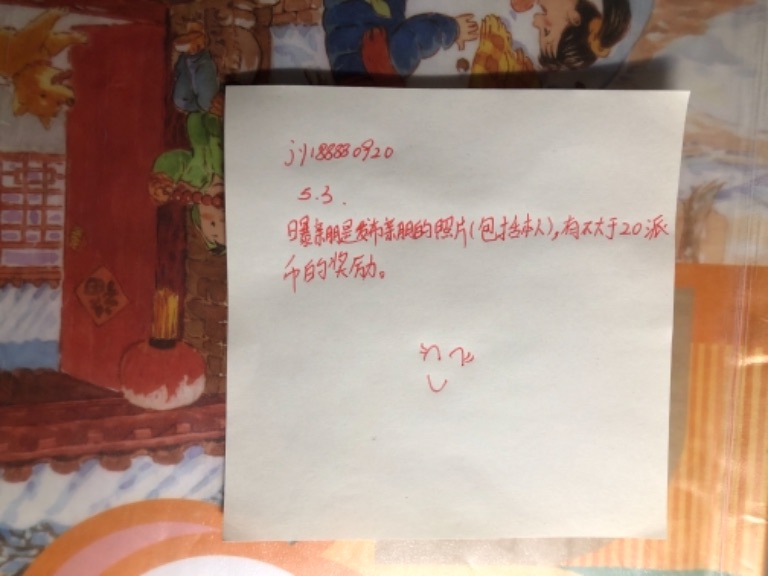 jyl18880920
5.3.
曝亲朋是发布亲朋的照片(包括本人),有不大于20派
币的奖励。